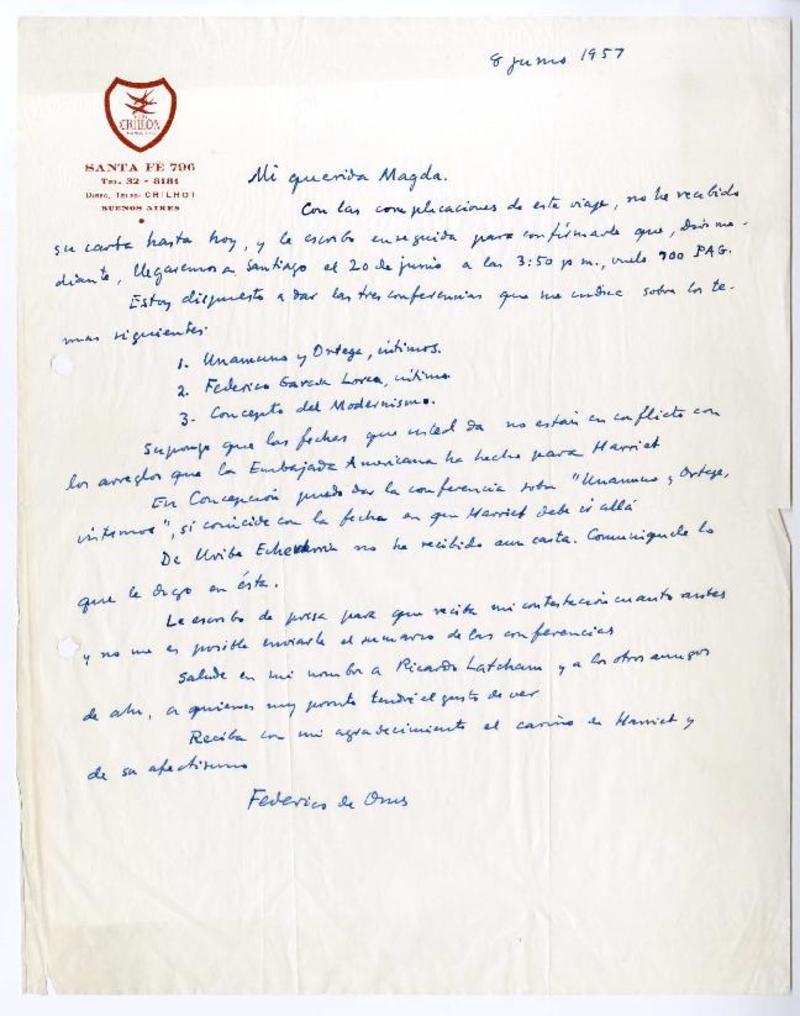 8 junio 1957
CRILLON
SANTA FÉ 796
TEL. 32 - 8181
DIREC. TELEG. CRILHOT
BUENOS AIRES
Mi querida Magda.
Con las complicaciones de este viaje, no he recibido
su carta hasta hoy, y le escribo enseguida para confirmarle que, Dios me-
diante, llegaremos a Santiago el 20 de junio a las 3:50 p m., vuelo 700 PAG.
Estoy dispuesto a dar las tres conferencias que me indica sobre los te-
mas siguientes:
1. Unamuno y Ortega, íntimos.
2. Federico García Lorca, íntimo
3. Concepto del Modernismo.
Supongo que las fechas que usted da no están en conflicto con
los arreglos que la Embajada Americana ha hecho para Harriet
En Concepción puedo dar la conferencia sobre "Unamuno y Ortega,
íntimos", si coincide con la fecha en que Harriet debe ir allá
De Uribe Echevarría no he recibido aun carta. Comuníquele lo
que le digo en ésta.
Le escribo de prisa para que reciba mi contestación cuanto antes
y no me es posible enviarle el sumario de las conferencias
Salude en mi nombre a Ricardo Latcham y a los otros amigos
de ahí, a quienes muy pronto tendré el gusto de ver
Reciba con mi agradecimiento el cariño de Harriet y
de su afectísimo
Federico de Onís